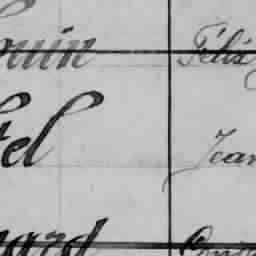 ouin Félix
tel Jean
nard